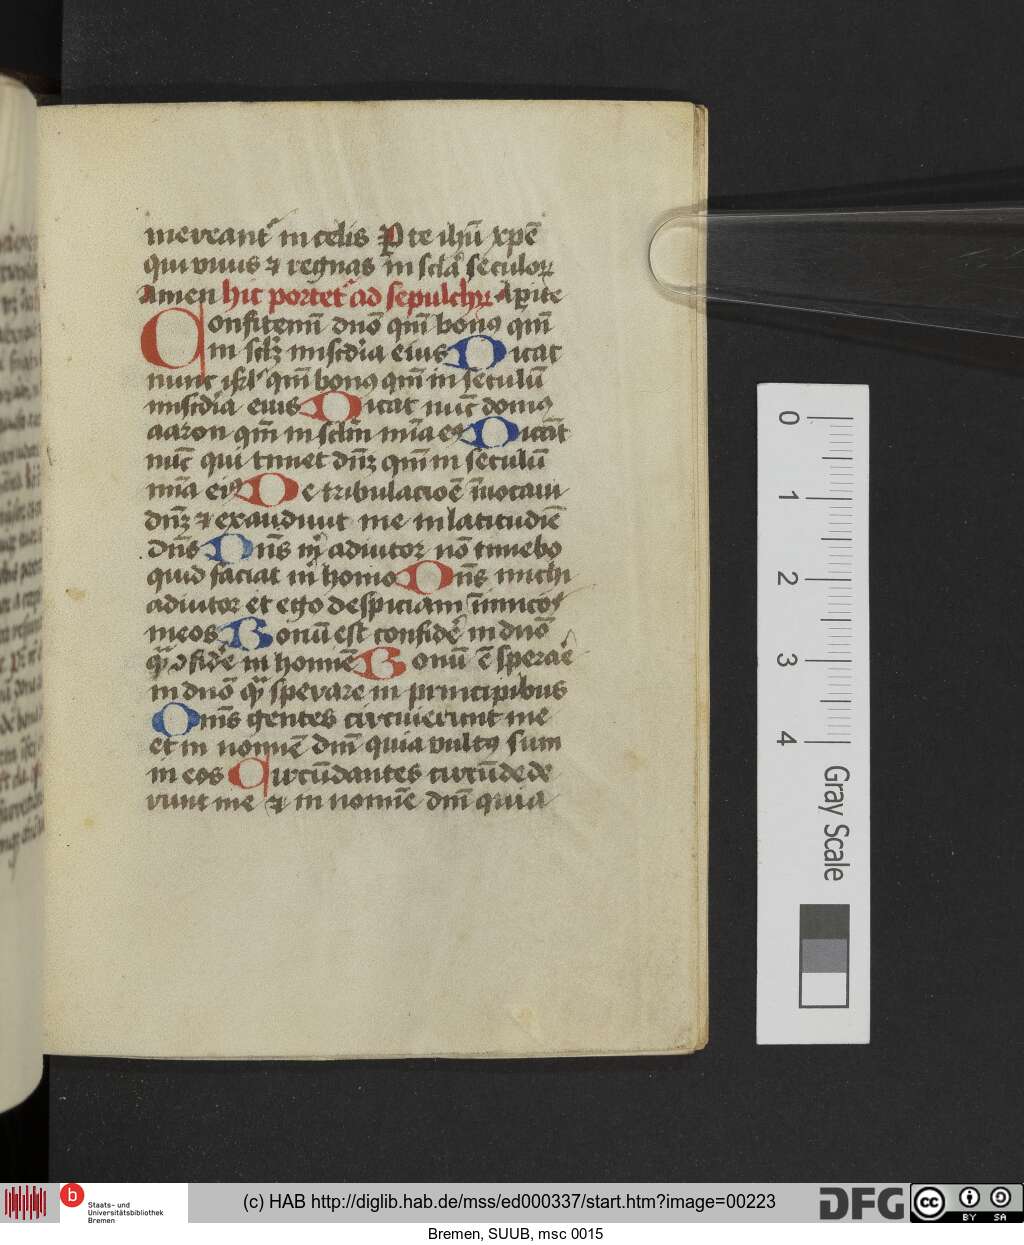 mereant᷑ in celis P te ihū xp̄e
qui viuis ⁊ regnas in sc̄la seculoꝝ
Amen hic portet᷑ ad sepulchꝝ Apite
Confitemī dnō qm̄ bonꝰ qm̄
in sc̄lꝫ miscd̄ia eius Dicat
nunc isrl' qm̄ bonꝰ qm̄ in seculū
miscd̄ia eius Dicat nūc domꝰ
aaron qm̄ in sclm̄ mīa eꝰ Dicāt
nūc qui timet dn̄ꝫ qm̄ in seculū
mīa eiꝰ De tribulacioē īuocaui
dn̄ꝫ ⁊ exaudiuit me in latitudīe
dn̄s Dn̄s m̄ adiutor nō timebo
quid faciat m̄ homo Dn̄s michi
adiutor et ego despiciam īimicos
meos Bonū est confide᷑ in dnō
qꝫ ꝯfide᷑ in homīe Bonū ē sperae᷑
in dnō qꝫ sperare in principibus
Omn̄s gentes circuierunt me
et in nomīe dm̄ quia vultꝰ sum
in eos Circūdantes circūdede
runt me ⁊ in nomīe dm̄ quia
0
1
2
3
4
Gray Scale
b
Staats- und
Universitätsbibliothek
Bremen
(c) HAB http://diglib.hab.de/mss/ed000337/start.htm?image=00223
DFG
cc BY SA
Bremen, SUUB, msc 0015